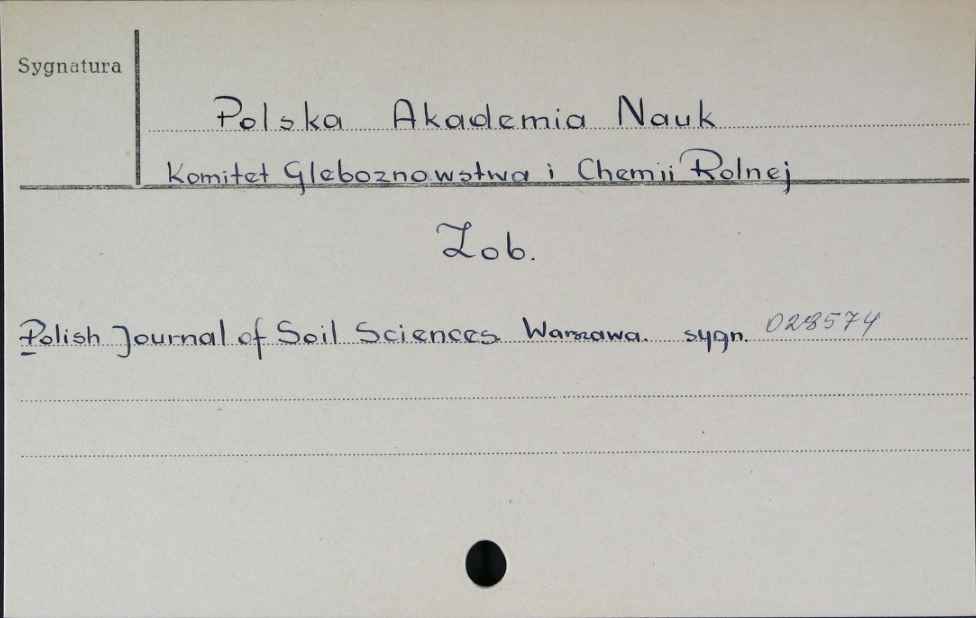 Sygnatura
Polska Akademia Nauk
Komitet Gleboznowstwa i Chemii Rolnej
Zob.
Polish Journal of Soil Sciences. Warszawa. sygn. 028574